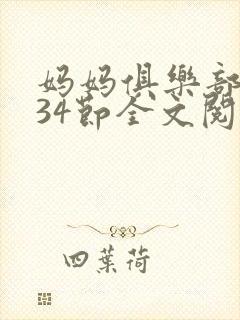 妈妈俱樂部
34節全文閱
四葉荷